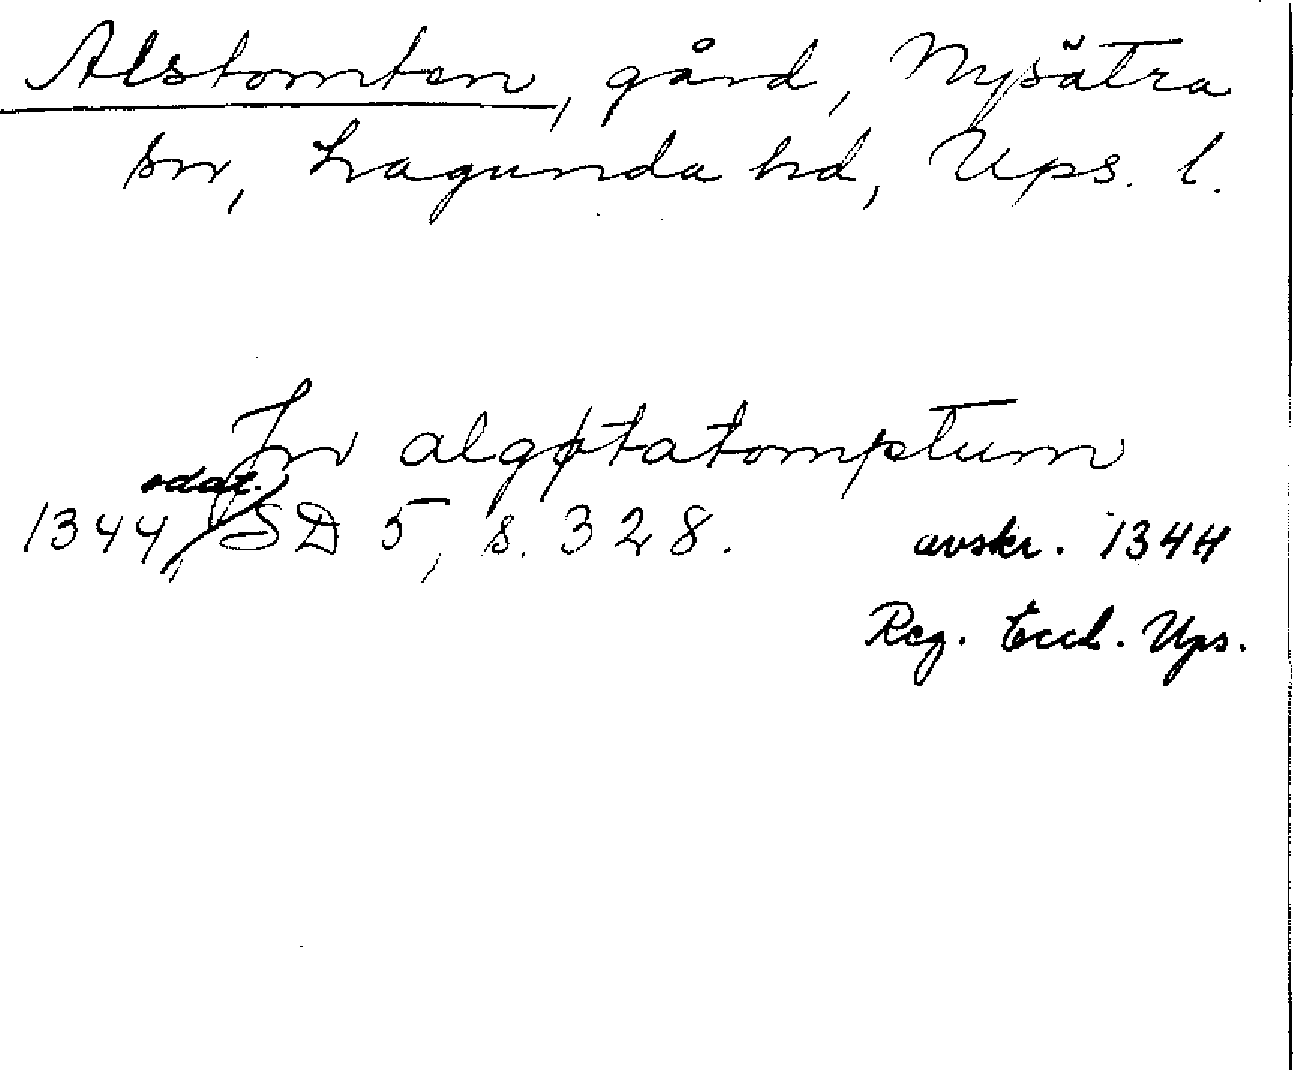 Alstomten, gård, Nysätra
sn, Lagunda hd, Ups. l.
In algøtatomptum
odat.
1344, SD 5, s. 328. avskr. 1344
Reg. Eccl. Ups.